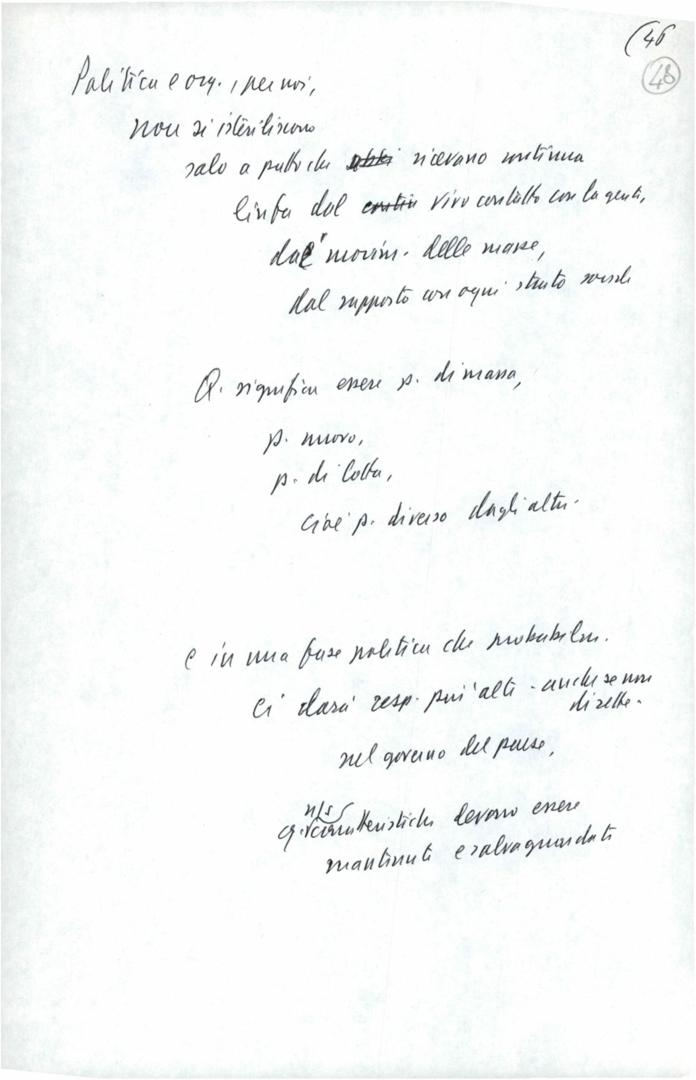 (46
48
Politica e org., per noi,
non si isteriliscono
solo a patto che ricevano continua
linfa dal vivo contatto con la gente,
dai movim. delle masse,
dal rapporto con ogni strato sociale
Q. significa essere p. di massa,
p. nuovo,
p. di lotta,
cioè p. diverso dagli altri.
e in una fase politica che probabilm.
ci darà resp. più alte - anche se non
dirette -
nel governo del paese,
n/s
q. caratteristiche devono essere
mantenute e salvaguardate